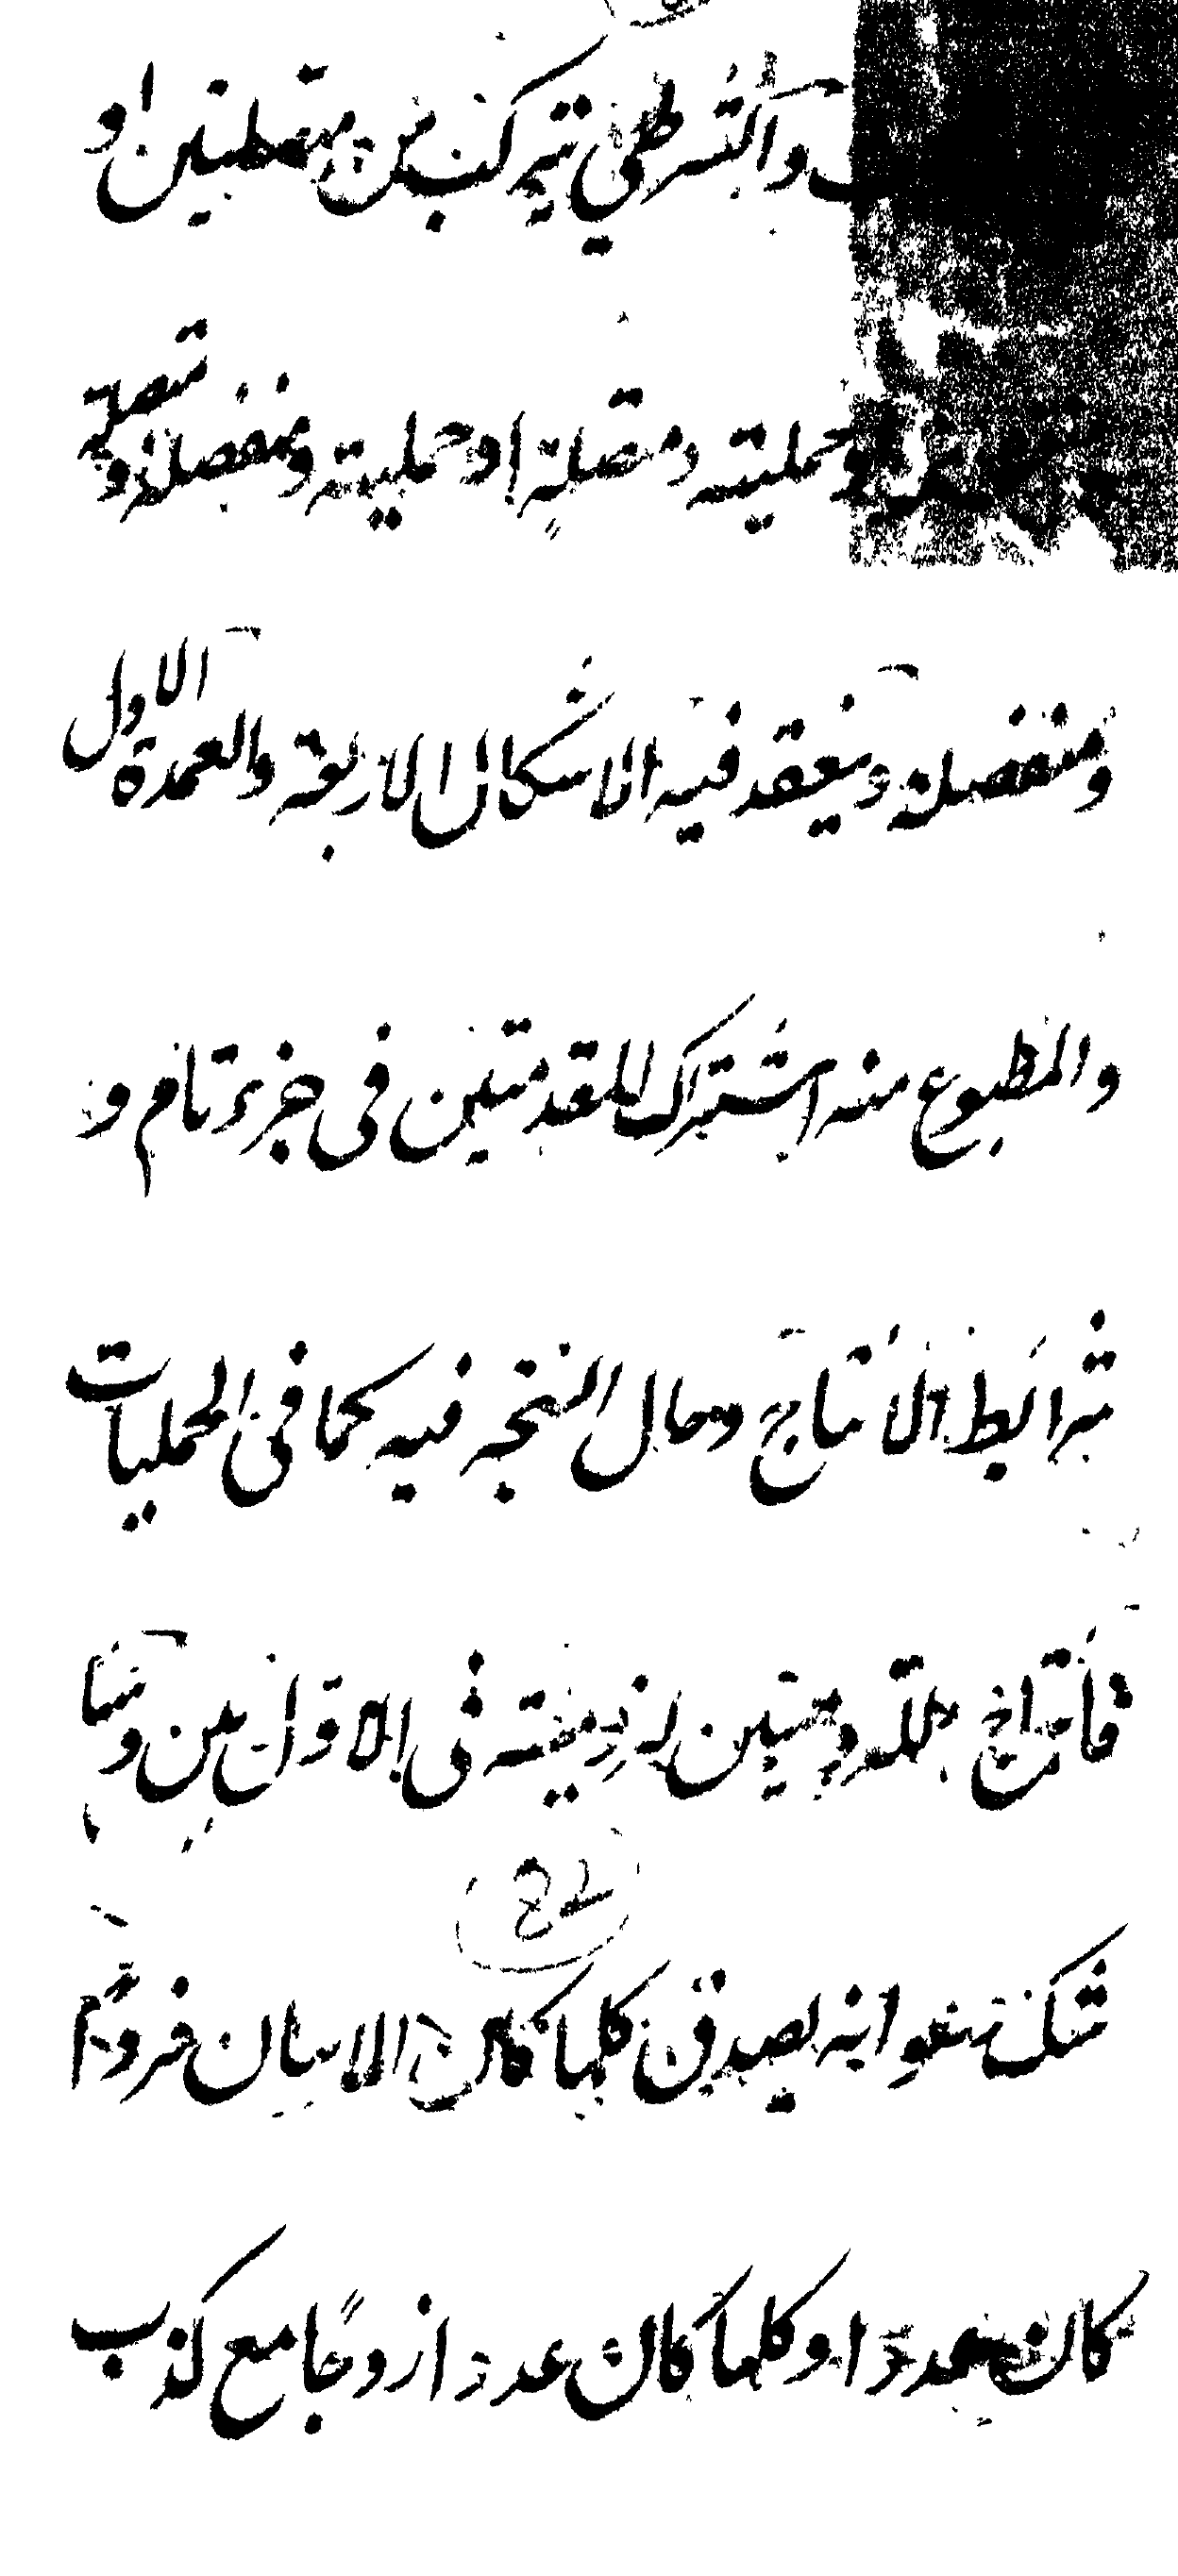 والشرطي يتركب من متصلتين او
وحملية ومتصلة او حملية ومنفصلة او متصلة
ومنفصلة وينعقد فيه الاشكال الاربعة والعمدة الاول
والمطبوع منه اشتراك المقدمتين في جزء تام و
شرائط الانتاج وحال النتيجة فيه كما في الحمليات
فانتاج اللزوميتين لزومية في الاول بين وههنا
شك وهو انه يصدق كلما كان الاثنان فردا
كان عددا وكلما كان عددا زوجا مع كذب